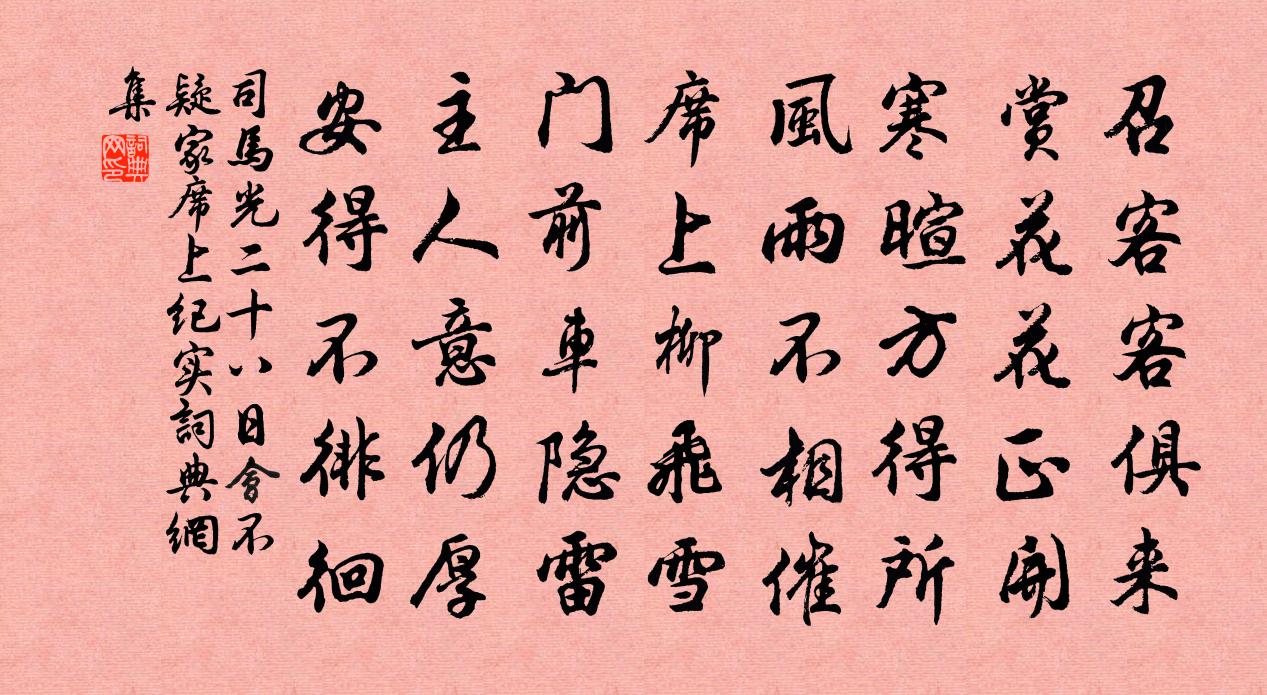 召客客俱来
赏花花正開
寒暄方得所
風雨不相催
席上柳飛雪
门前車隐雷
主人意仍厚
安得不徘徊
司馬光二十八日會不
疑家席上纪实詞典網
集
詞典網印